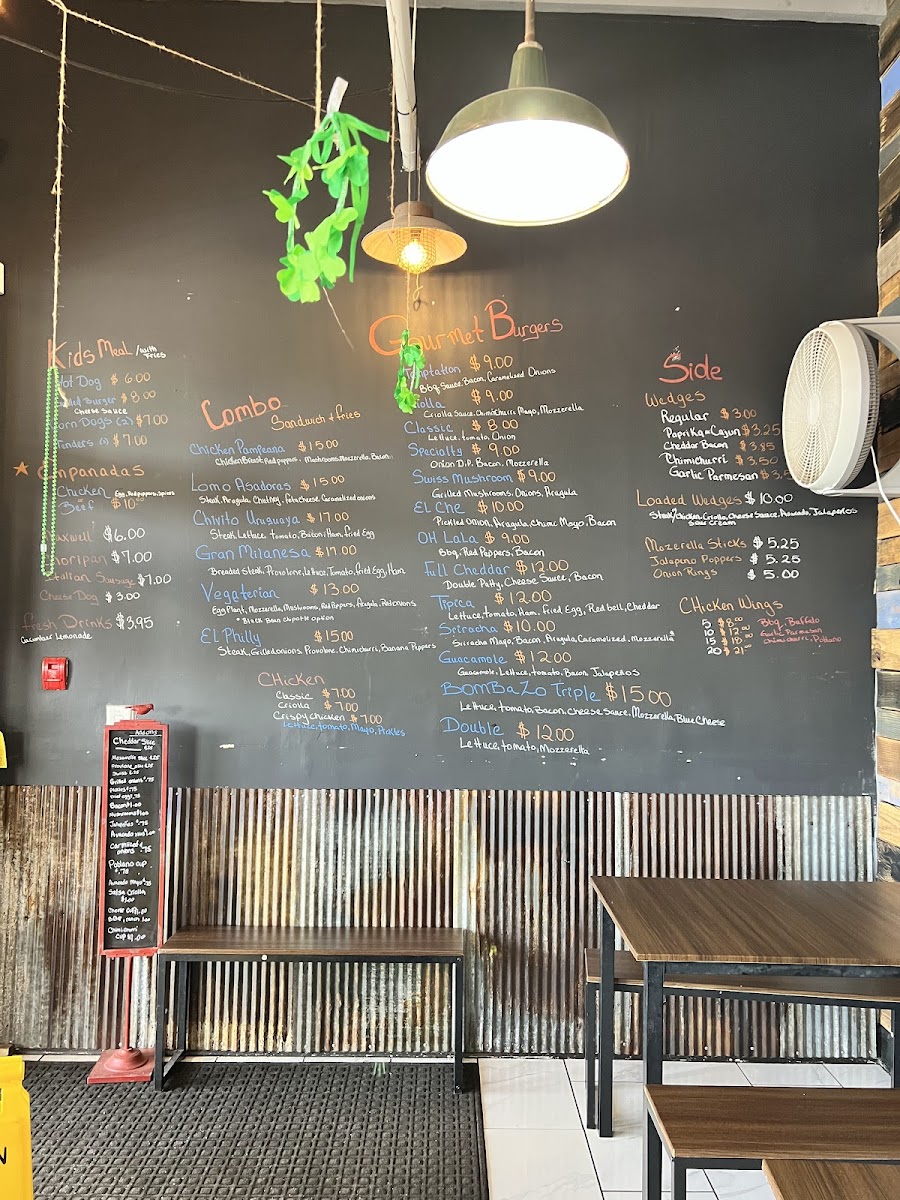 Kids Meal /with Fries
Hot Dog $6.00
Burger $8.00
Cheese Sauce
Corn Dogs (2) $7.00
Tenders $7.00
Empanadas
Chicken Egg, Red peppers, Spices
Beef $10
$6.00
Choripan $7.00
Italian Sausage $7.00
Cheese Dog $3.00
Fresh Drinks $3.95
Cucumber Lemonade
Combo
Sandwich + fries
Chicken Pampeana $15.00
Chicken Breast, Red peppers, Mushrooms, Mozzarella, Bacon
Lomo Asadoras $15.00
Steak, Arugula, Feta cheese, Caramelized onions
Chivito Uruguaya $17.00
Steak, Lettuce, tomato, Bacon, Ham, fried Egg
Gran Milanesa $17.00
Breaded steak, Provolone, lettuce, Tomato, fried Egg, Ham
Vegaterian $13.00
Egg Plant, Mozzarella, Mushrooms, Red Peppers, Arugula,
* Black Bean Chipotle option
El Philly $15.00
Steak, Grilled onions, Provolone, Chimichurri, Banana Peppers
Chicken
Classic $7.00
Criolla $7.00
Crispy chicken $7.00
Lettuce, tomato, Mayo, Pickles
Gourmet Burgers
Temptation $9.00
Bbq Sauce, Bacon, Caramelized Onions
Criolla $9.00
Criolla Sauce, Chimichurri Mayo, Mozzerella
Classic $8.00
Lettuce, tomato, Onion
Specialty $9.00
Onion D.P. Bacon, Mozzerella
Swiss Mushroom $9.00
Grilled Mushrooms, Onions, Arugula
EL Che $10.00
Pickled Onion, Arugula, Chimi Mayo, Bacon
OH LaLa $9.00
Bbq, Red Peppers, Bacon
Full Cheddar $12.00
Double Patty, Cheese Sauce, Bacon
Tipica $12.00
Lettuce, tomato, Ham, fried Egg, Red bell, Cheddar
Sriracha $10.00
Sriracha Mayo, Bacon, Arugula, Caramelized, Mozzarella
Guacamole $12.00
Guacamole, Lettuce, tomato, Bacon, Jalapeños
BOMBaZo Triple $15.00
Lettuce, tomato, Bacon, Cheese Sauce, Mozzarella, Blue Cheese
Double $12.00
Lettuce, tomato, Mozzerella
Side
Wedges
Regular $3.00
Paprika-Cajun $3.25
Cheddar Bacon $3.85
Chimichurri $3.50
Garlic Parmesan
Loaded Wedges $10.00
Steak/Chicken, Criolla, Cheese Sauce, Avocado, Jalapeños
Sour cream
Mozerella Sticks $5.25
Jalapeno Poppers $5.25
Onion Rings $5.00
Chicken Wings
5 $8.00 Bbq, Buffalo
10 $12.00 Garlic Parmesan
15 $18.00 Chimichurri, Poblano
20 $21
Add ons
Cheddar Slice
Swiss
Grilled onions .75
Bacon $1.00
Mushrooms
Avocado
Poblano cup
$.75
Avocado Mayo $.75
Salsa Criolla
$1.00
Chimi Churri
Cup $1.00
N